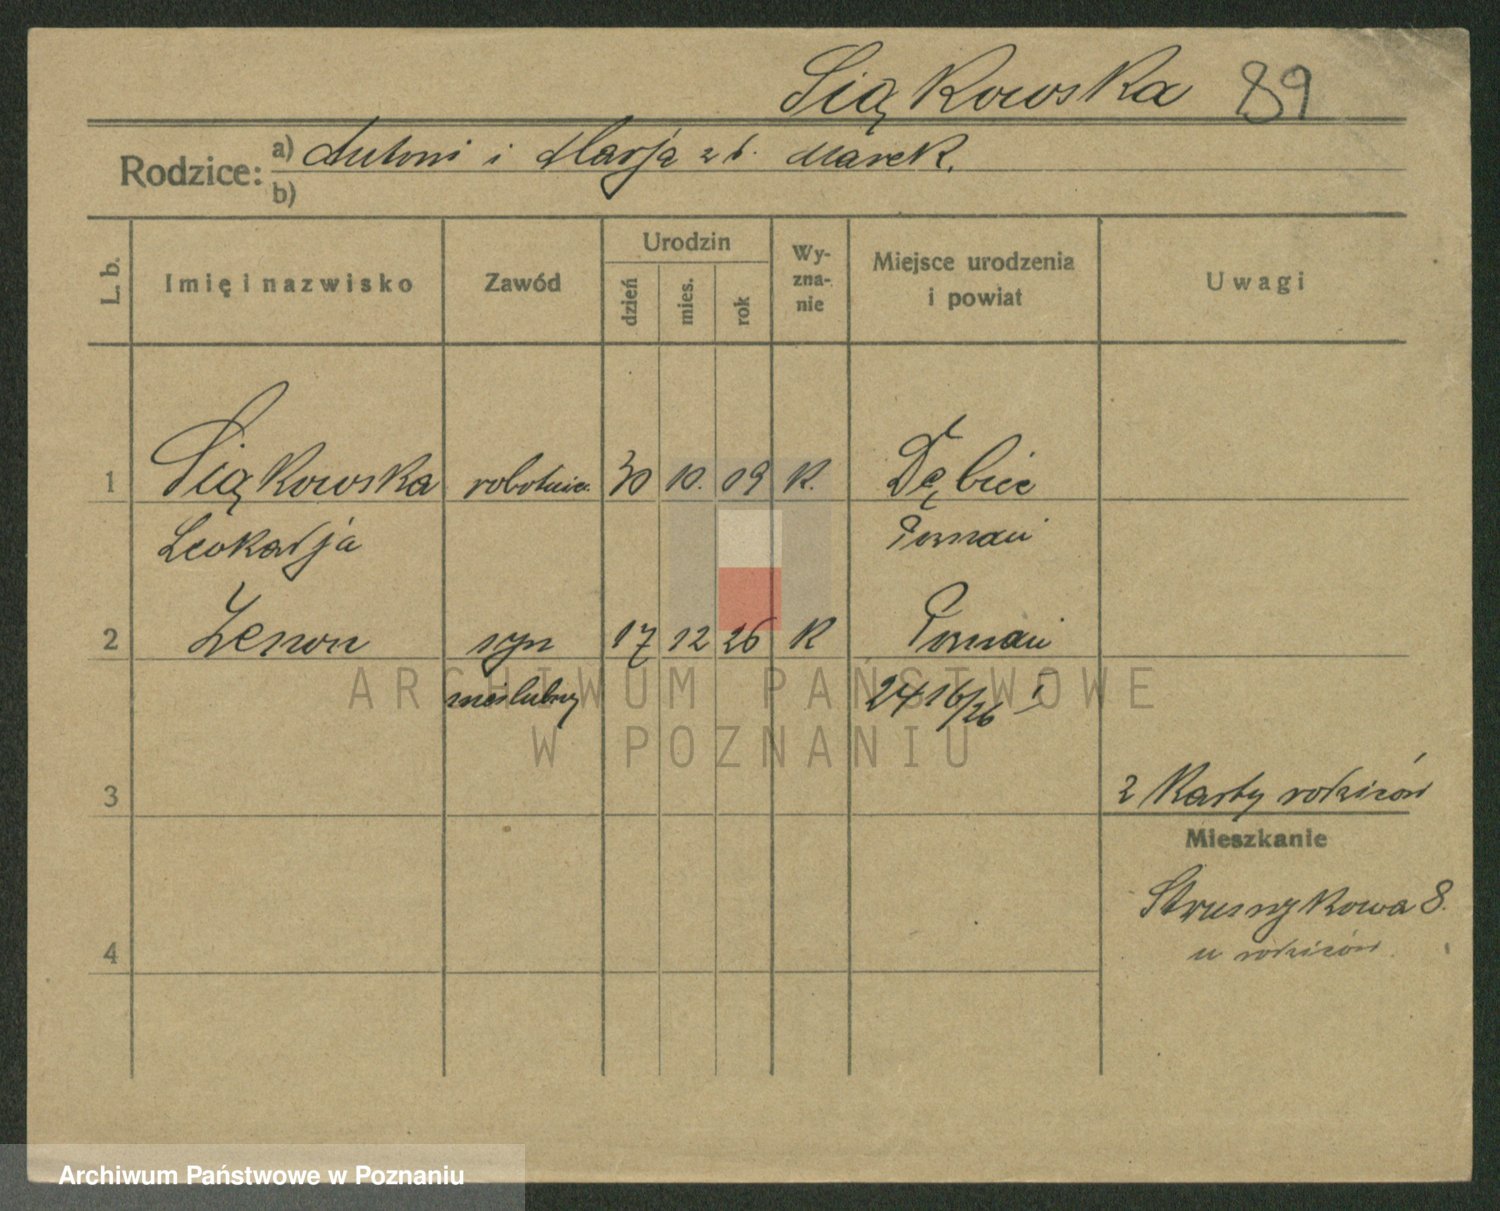 Siąkowska 89
Rodzice: a) Antoni i Marja z d. Marek.
b)
L. b. Imię i nazwisko Zawód Urodzin dzień mies. rok Wy-zna-nie Miejsce urodzenia i powiat Uwagi
1 Siąkowska robotnica 30 10. 09 K. Dębiec
Leokadja Poznań
2 Zenon syn 17 12 26 K Poznań
nieślubny 2416/26 I
ARCHIWUM PAŃSTWOWE
W POZNANIU
3 z Karty rodziców
Mieszkanie
Strumykowa 8.
u rodziców.
4
Archiwum Państwowe w Poznaniu